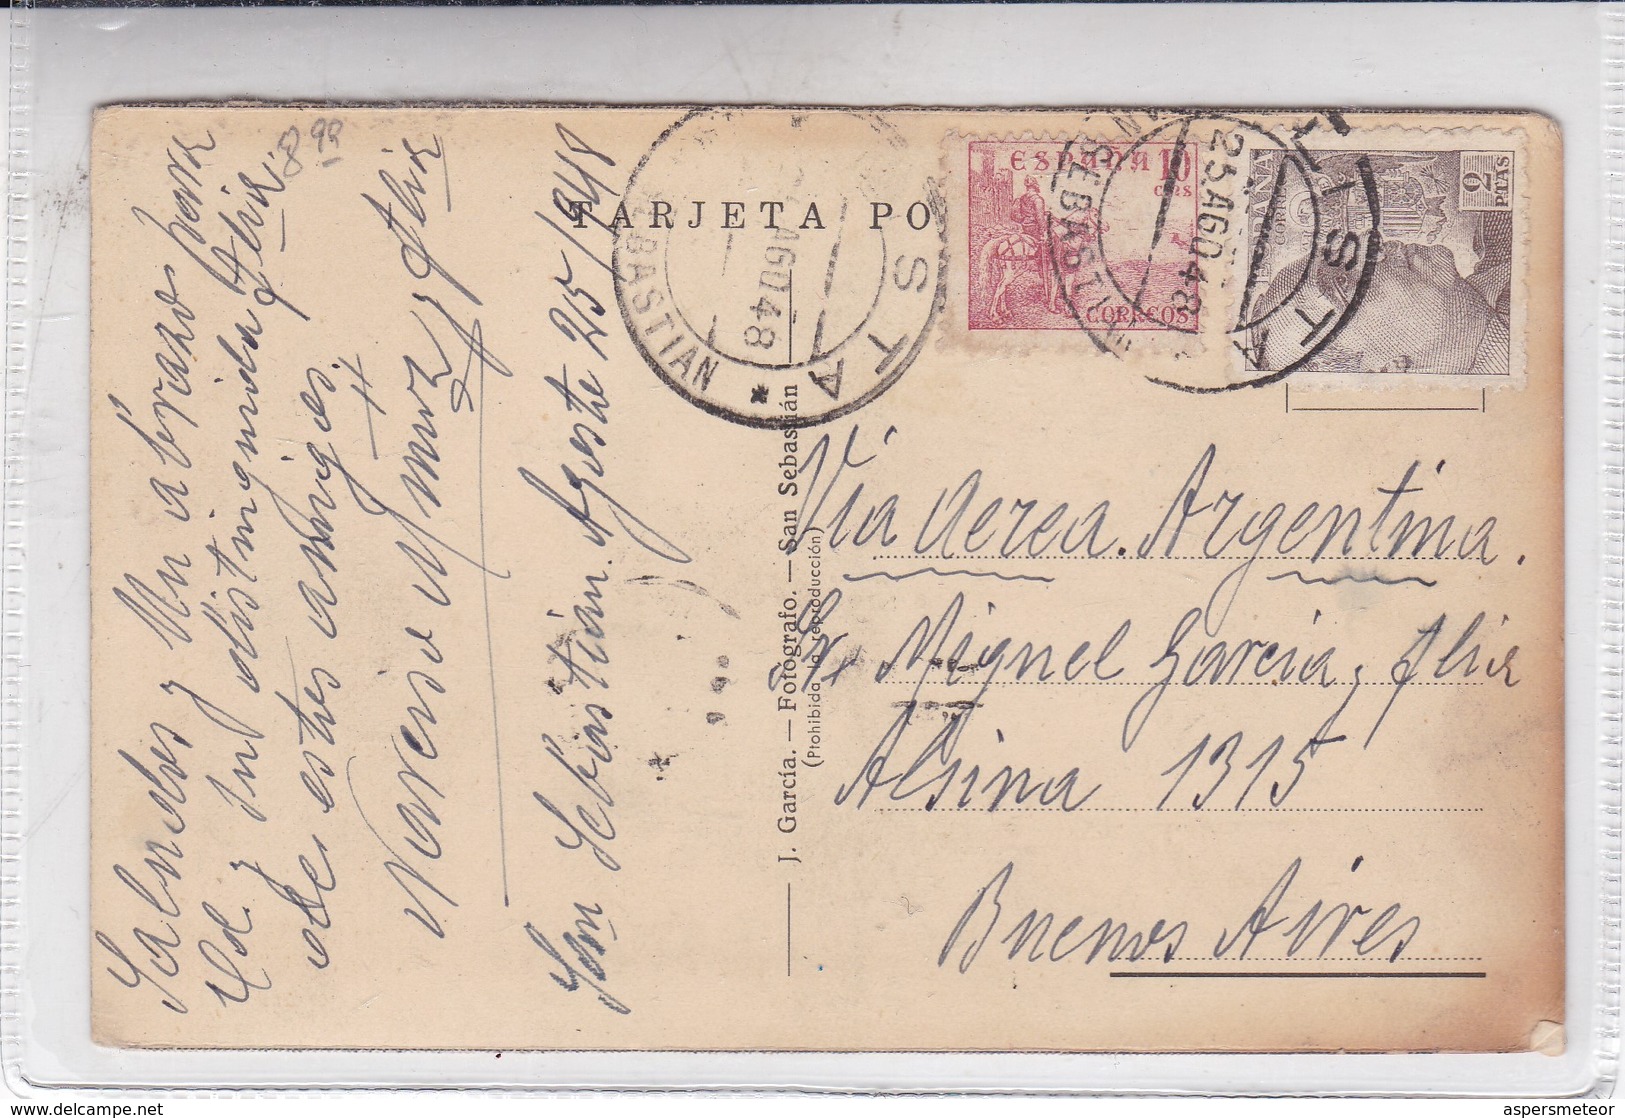 TARJETA PO
Saludos y Un abrazo para
Vd. y Su distinguida Flia.
de estos amigos.
Narciso Munuz y Flia
San Sebastián. Agosto 25/1948
8 99
J. García. — Fotógrafo. — San Sebastián
(Prohibida la reproducción)
ESPAÑA 10
CTS
CORREOS
ESPAÑA
CORREOS
2
PTAS
SEBASTIAN
AGO 48
LISTA
25 AGO 48
SEBASTIAN
Via Aerea. Argentina.
Sr. Miguel Garcia y flia
Alsina 1315
Buenos Aires
www.delcampe.net
aspersmeteor